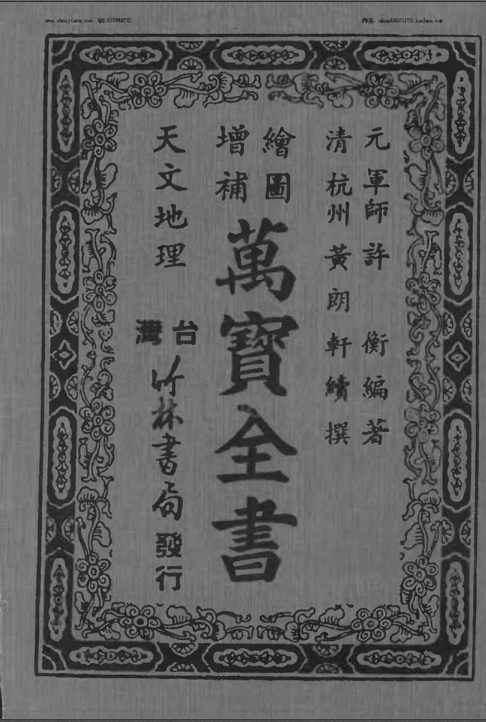 元軍師許 衡編著
清杭州黃朗軒續撰
繪圖
增補
萬寶全書
天文地理
台灣
竹林書局發行